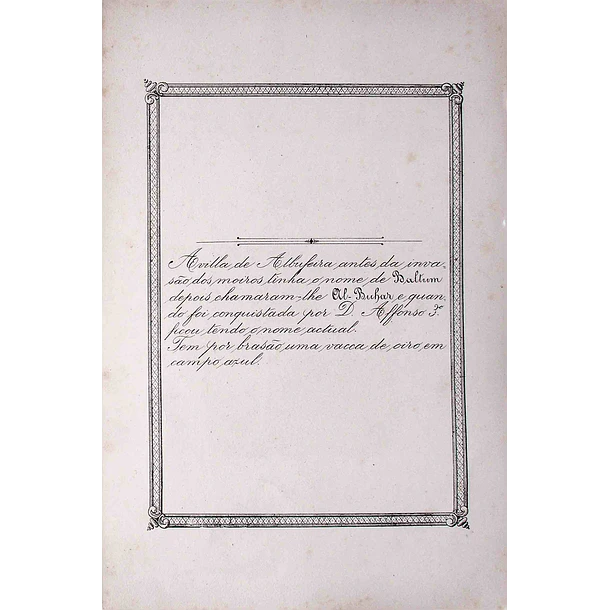 A villa de Albufeira antes da inva-
são dos moiros, tinha o nome de Baltum
depois chamaram-lhe Al-Buhar e quan-
do foi conquistada por D. Affonso 3.º
ficou tendo o nome actual.
Tem por brasão uma vacca de oiro em
campo azul.